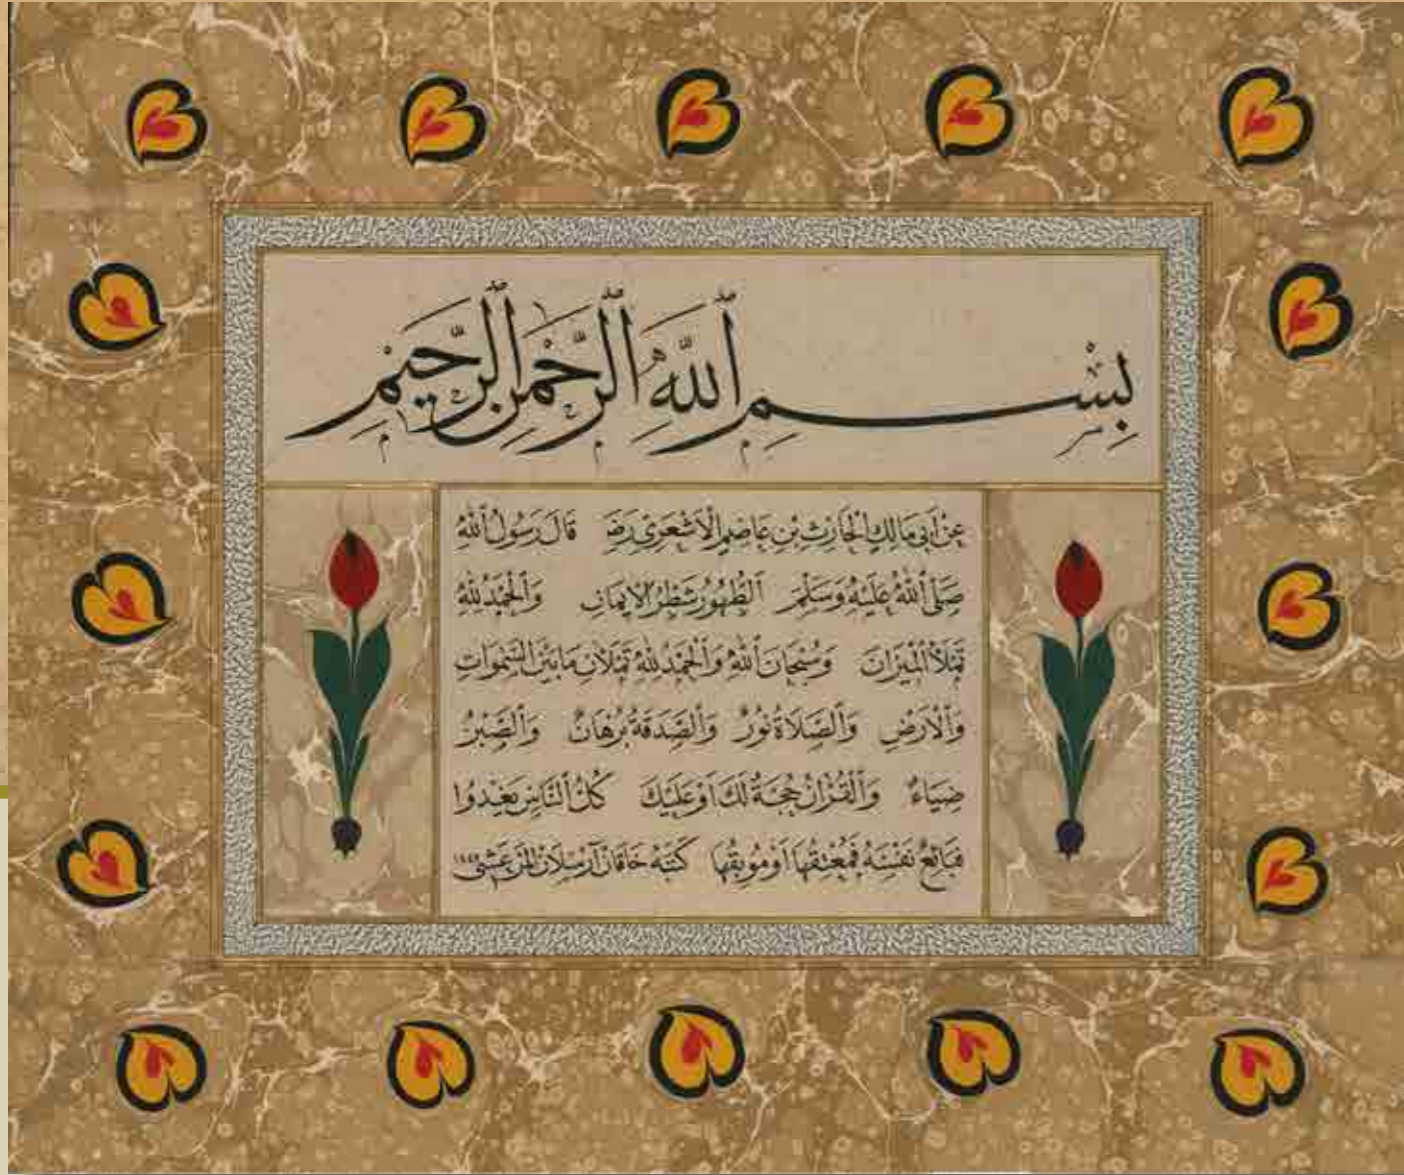 بِسْمِ ٱللّٰهِ ٱلرَّحْمٰنِ ٱلرَّحِيمِ
عَنْ أَبِي مَالِكٍ الْحَارِثِ بْنِ عَاصِمٍ الْأَشْعَرِيِّ رَضَ قَالَ رَسُولُ اللّٰهِ
صَلَّى اللّٰهُ عَلَيْهِ وَسَلَّمَ اَلطُّهُورُ شَطْرُ الْإِيمَانِ وَالْحَمْدُ لِلّٰهِ
تَمْلَأُ الْمِيزَانَ وَسُبْحَانَ اللّٰهِ وَالْحَمْدُ لِلّٰهِ تَمْلَآنِ مَا بَيْنَ السَّمٰوَاتِ
وَالْأَرْضِ وَالصَّلَاةُ نُورٌ وَالصَّدَقَةُ بُرْهَانٌ وَالصَّبْرُ
ضِيَاءٌ وَالْقُرْآنُ حُجَّةٌ لَكَ أَوْ عَلَيْكَ كُلُّ النَّاسِ يَغْدُوا
فَبَائِعٌ نَفْسَهُ فَمُعْتِقُهَا أَوْ مُوبِقُهَا كَتَبَهُ خَاقَانْ آرْسْلَانْ الْمَرْعَشِيّ